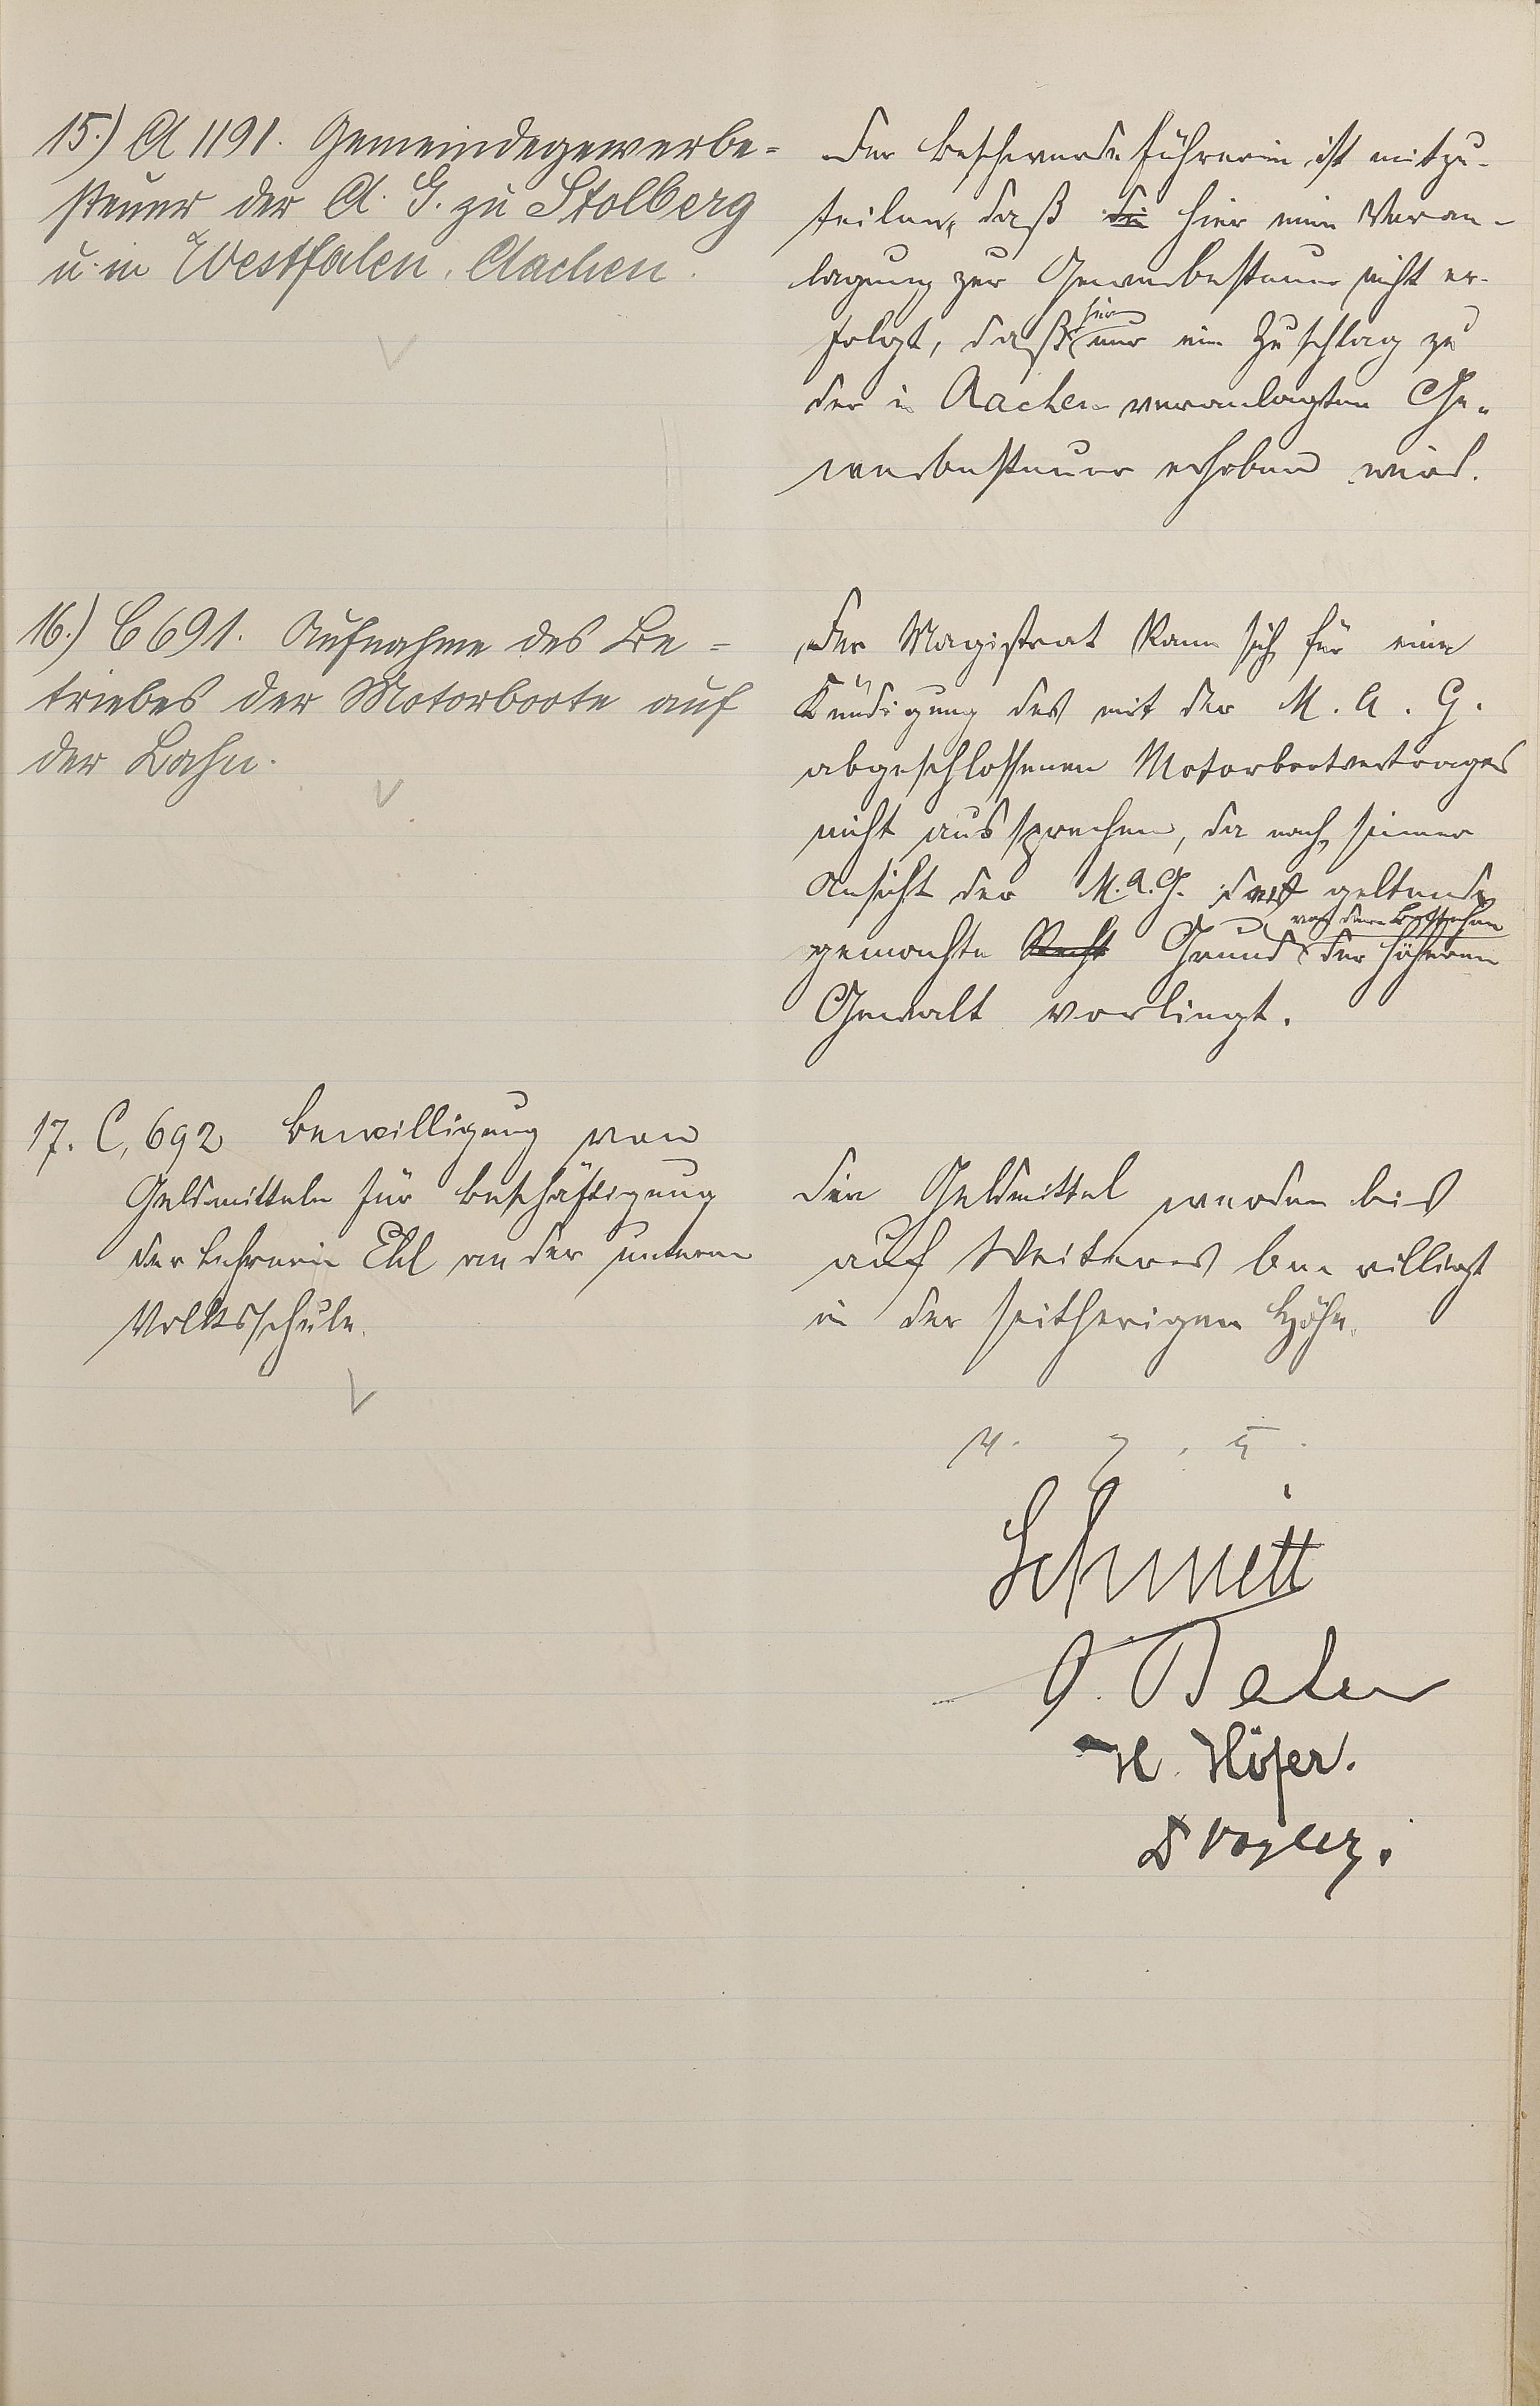 15.) A 1191. Gemeindegewerbe-
steuer der A. G. zu Stolberg
u. in Westfalen, Aachen.
Der Beschwerdeführerin ist mitzu-
teilen, daß die hier eine Veran-
lagung zur Gewerbesteuer nicht er-
folgt, daß hier nur ein Zuschlag zu
der in Aachen veranlagten Ge-
werbesteuer erhoben wird.
16.) C 691. Aufnahme des Be-
triebes der Motorboote auf
der Lahn.
Der Magistrat kann sich für eine
Kündigung des mit der M. A. G.
abgeschlossenen Motorbootvertrages
nicht aussprechen, da nach seiner
Ansicht der M. A. G. geltend
gemachte Recht Grund von dem Bestehen der höheren
Gewalt vorliegt.
17. C, 692 Bewilligung von
Geldmitteln für Beschäftigung
der Lehrerin Ehl an der unteren
Volksschule.
Die Geldmittel werden bis
auf Weiteres bewilligt
in der seitherigen Höhe.
Schmitt
H. Höfer.